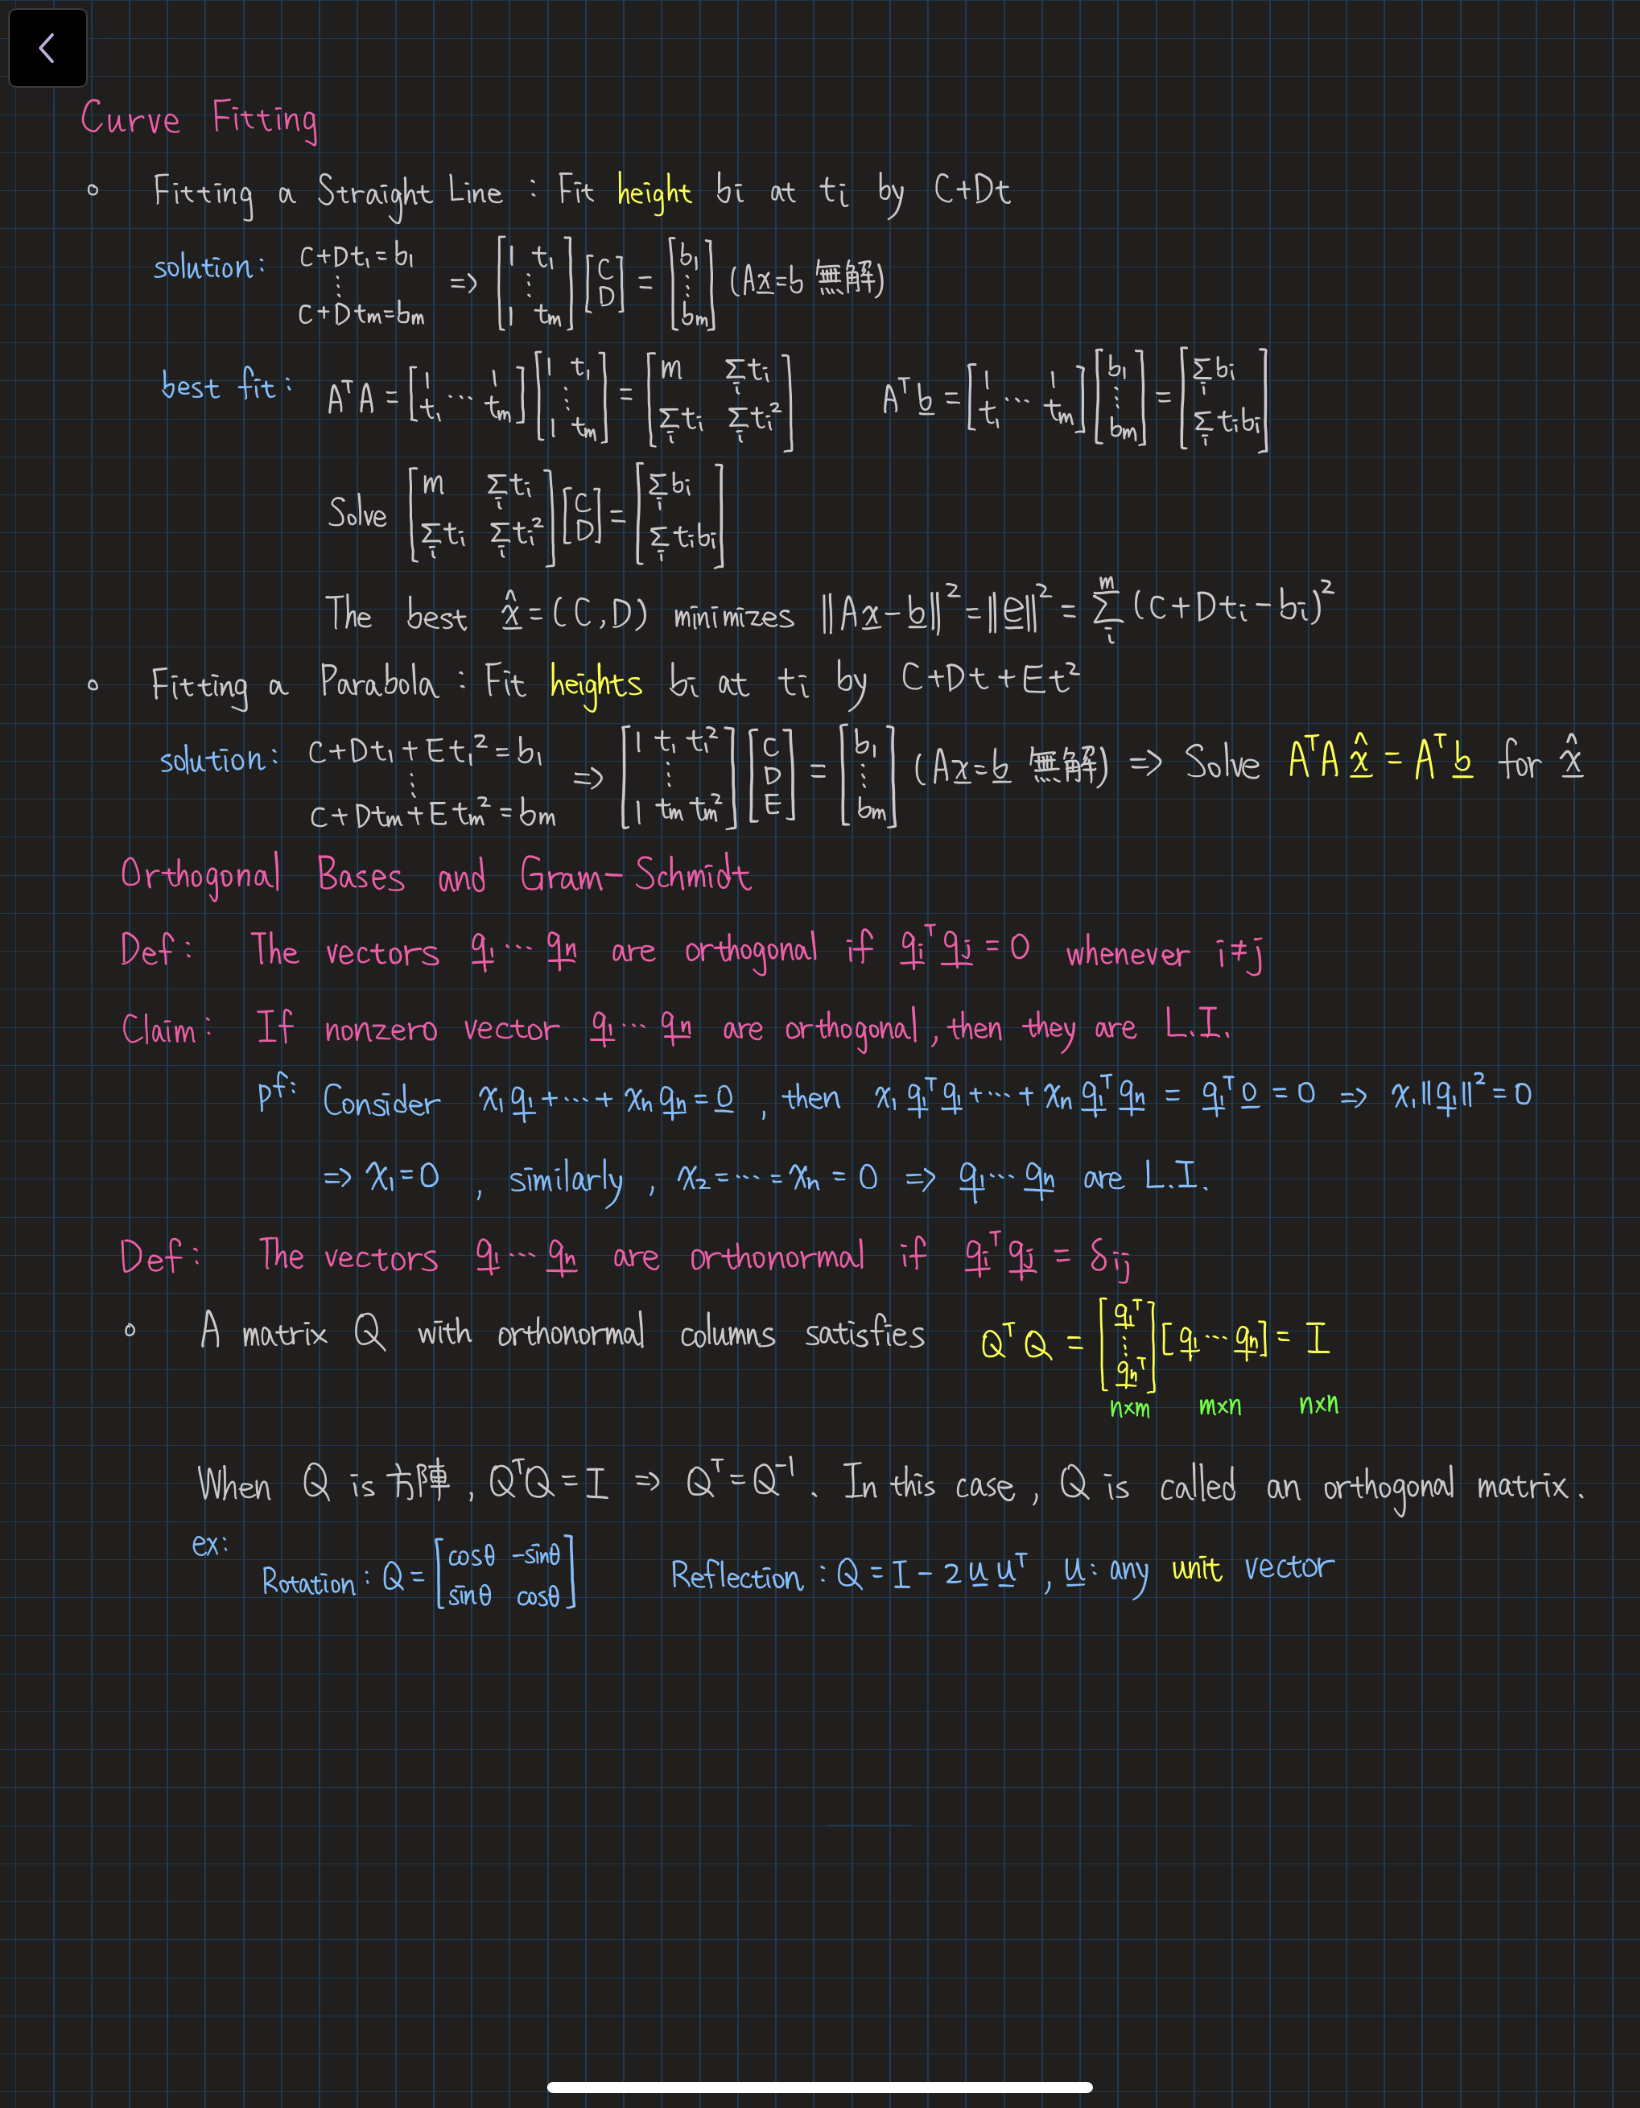 Curve Fitting
◦ Fitting a Straight Line : Fit height bᵢ at tᵢ by C+Dt
solution: C+Dt₁=b₁ ⋮ C+Dtₘ=bₘ => [1 t₁ ⋮ 1 tₘ][C D] = [b₁ ⋮ bₘ] (Ax=b 無解)
best fit: AᵀA = [1 ⋯ 1 t₁ ⋯ tₘ][1 t₁ ⋮ 1 tₘ] = [m Σᵢtᵢ Σᵢtᵢ Σᵢtᵢ²] Aᵀb = [1 ⋯ 1 t₁ ⋯ tₘ][b₁ ⋮ bₘ] = [Σᵢbᵢ Σᵢtᵢbᵢ]
Solve [m Σᵢtᵢ Σᵢtᵢ Σᵢtᵢ²][C D] = [Σᵢbᵢ Σᵢtᵢbᵢ]
The best x̂ = (C,D) minimizes ‖Ax-b‖² = ‖e‖² = Σᵢᵐ (C+Dtᵢ-bᵢ)²
◦ Fitting a Parabola : Fit heights bᵢ at tᵢ by C+Dt+Et²
solution: C+Dt₁+Et₁²=b₁ ⋮ C+Dtₘ+Etₘ²=bₘ => [1 t₁ t₁² ⋮ 1 tₘ tₘ²][C D E] = [b₁ ⋮ bₘ] (Ax=b 無解) => Solve AᵀAx̂ = Aᵀb for x̂
Orthogonal Bases and Gram-Schmidt
Def: The vectors q₁⋯qₙ are orthogonal if qᵢᵀqⱼ=0 whenever i≠j
Claim: If nonzero vector q₁⋯qₙ are orthogonal, then they are L.I.
pf: Consider x₁q₁+⋯+xₙqₙ=0 , then x₁q₁ᵀq₁+⋯+xₙq₁ᵀqₙ = q₁ᵀ0 = 0 => x₁‖q₁‖²=0
=> x₁=0 , similarly, x₂=⋯=xₙ=0 => q₁⋯qₙ are L.I.
Def: The vectors q₁⋯qₙ are orthonormal if qᵢᵀqⱼ = δᵢⱼ
◦ A matrix Q with orthonormal columns satisfies QᵀQ = [q₁ᵀ ⋮ qₙᵀ][q₁⋯qₙ] = I
n×m m×n n×n
When Q is 方陣, QᵀQ=I => Qᵀ=Q⁻¹. In this case, Q is called an orthogonal matrix.
ex: Rotation: Q=[cosθ -sinθ sinθ cosθ] Reflection: Q=I-2uuᵀ, u: any unit vector